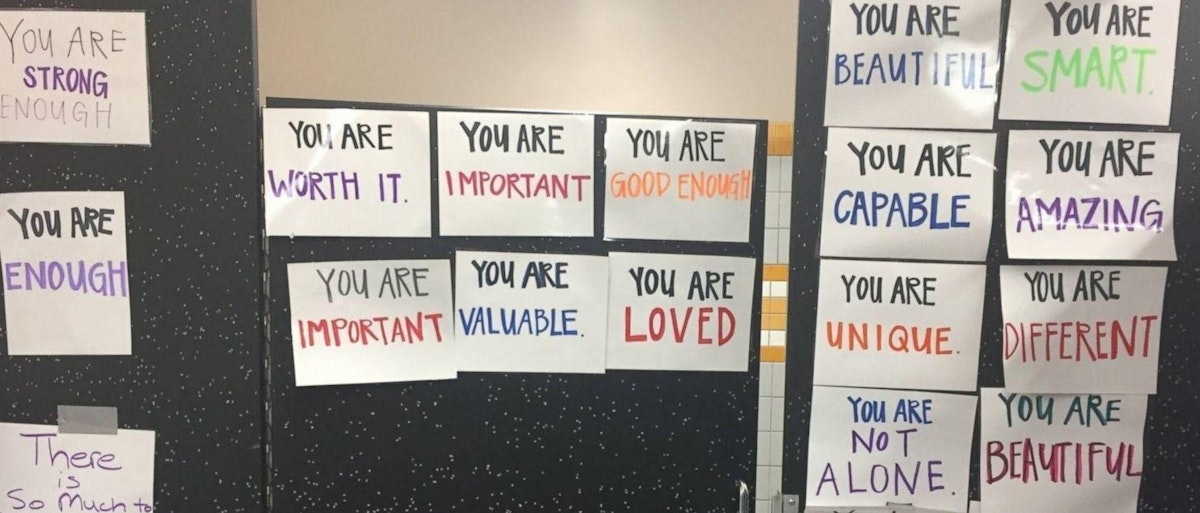 YOU ARE
STRONG
ENOUGH
YOU ARE
ENOUGH
There
is
So Much to
YOU ARE
WORTH IT.
YOU ARE
IMPORTANT
YOU ARE
GOOD ENOUGH
YOU ARE
IMPORTANT
YOU ARE
VALUABLE.
YOU ARE
LOVED
YOU ARE
BEAUTIFUL
YOU ARE
SMART.
YOU ARE
CAPABLE
YOU ARE
AMAZING
YOU ARE
UNIQUE.
YOU ARE
DIFFERENT
YOU ARE
NOT
ALONE.
YOU ARE
BEAUTIFUL